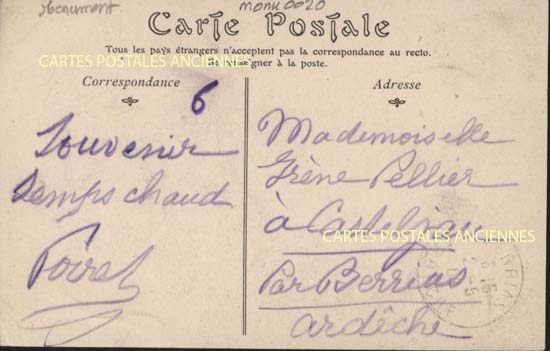 Monument
monu0020
Carte Postale
Tous les pays étrangers n'acceptent pas la correspondance au recto.
Se renseigner à la poste.
CARTES POSTALES ANCIENNES
Correspondance
Adresse
6
Souvenir
Temps chaud
Poiret
Mademoiselle
Irène Pellier
à Casteljau
CARTES POSTALES ANCIENNES
Par Berrias
ardèche